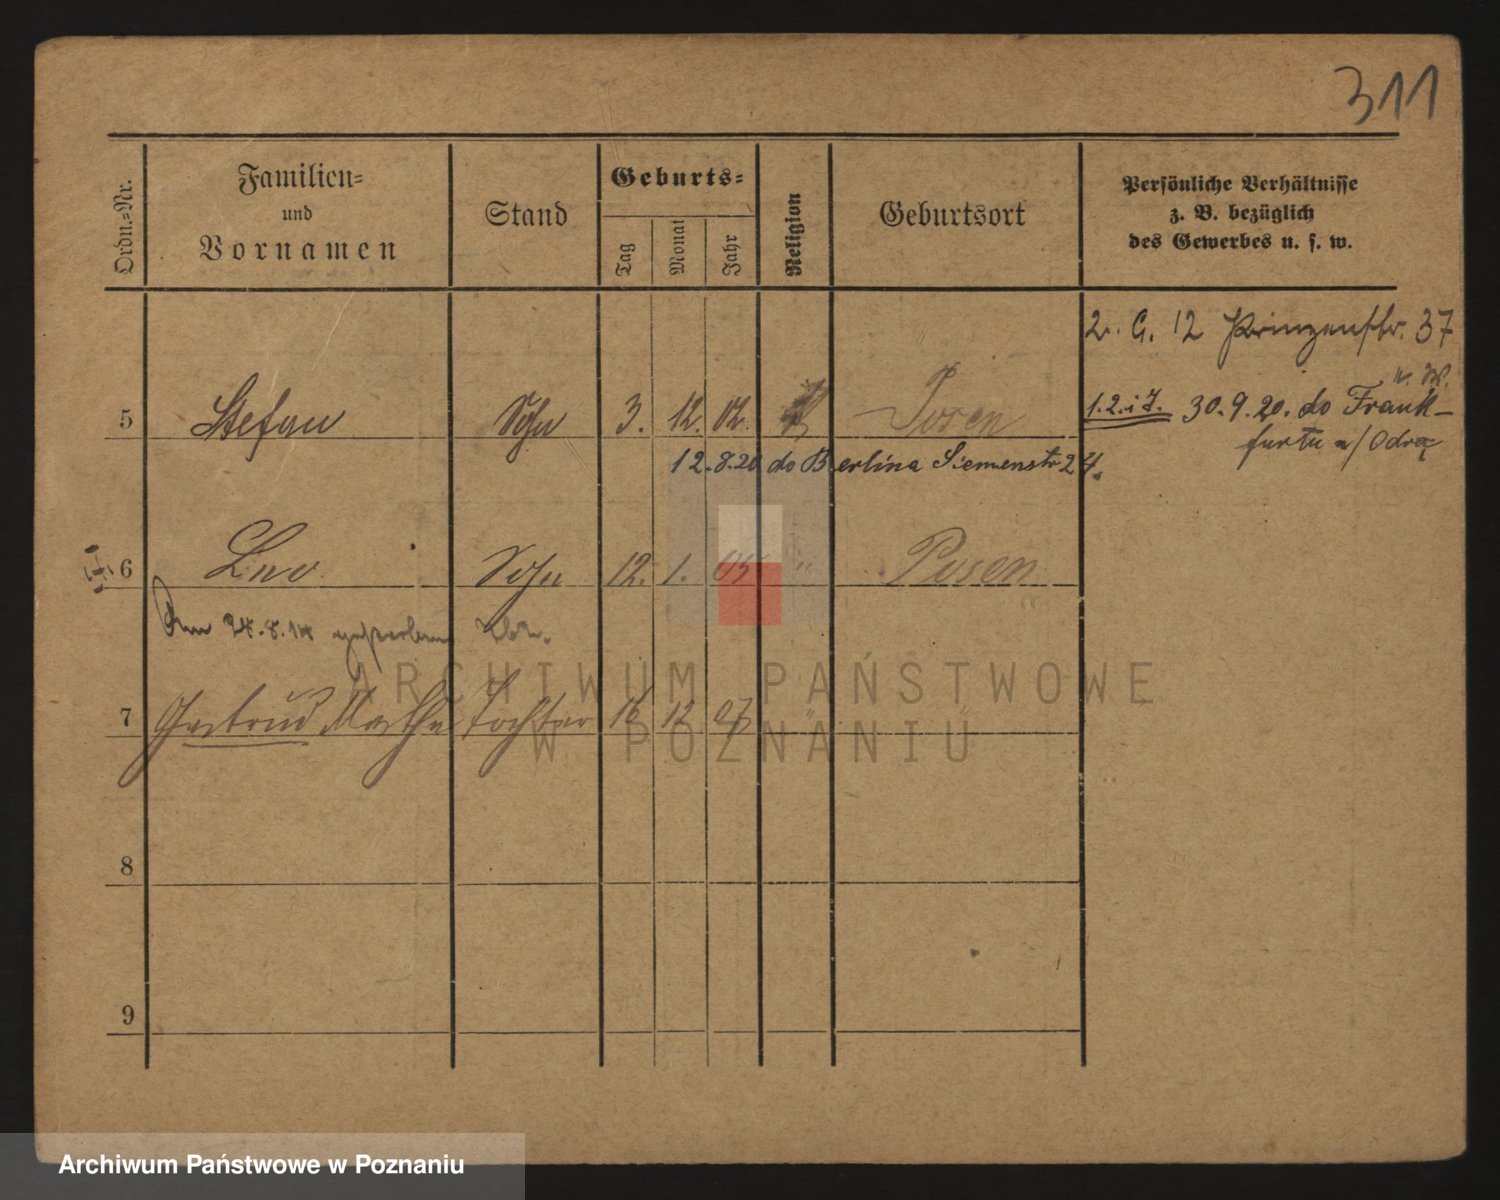 311
Ordn.-Nr.
Familien-
und
Vornamen
Stand
Geburts-
Tag
Monat
Jahr
Religion
Geburtsort
Persönliche Verhältnisse
z. B. bezüglich
des Gewerbes u. s. w.
12 Prinzenstr. 37
5 Stefan Sohn 3. 12. 02. Posen
1.2. i 7. 30.9.20. do Frank-
furtu a/Odrą
12.8.20 do Berlina Siemenstr 24.
6 Leo Sohn 12. 1. 05 " Posen
Am 24.8.14 gestorben
7 Gertrud Martha Tochter 16 12 07 " "
8
9
ARCHIWUM PAŃSTWOWE
W POZNANIU
Archiwum Państwowe w Poznaniu